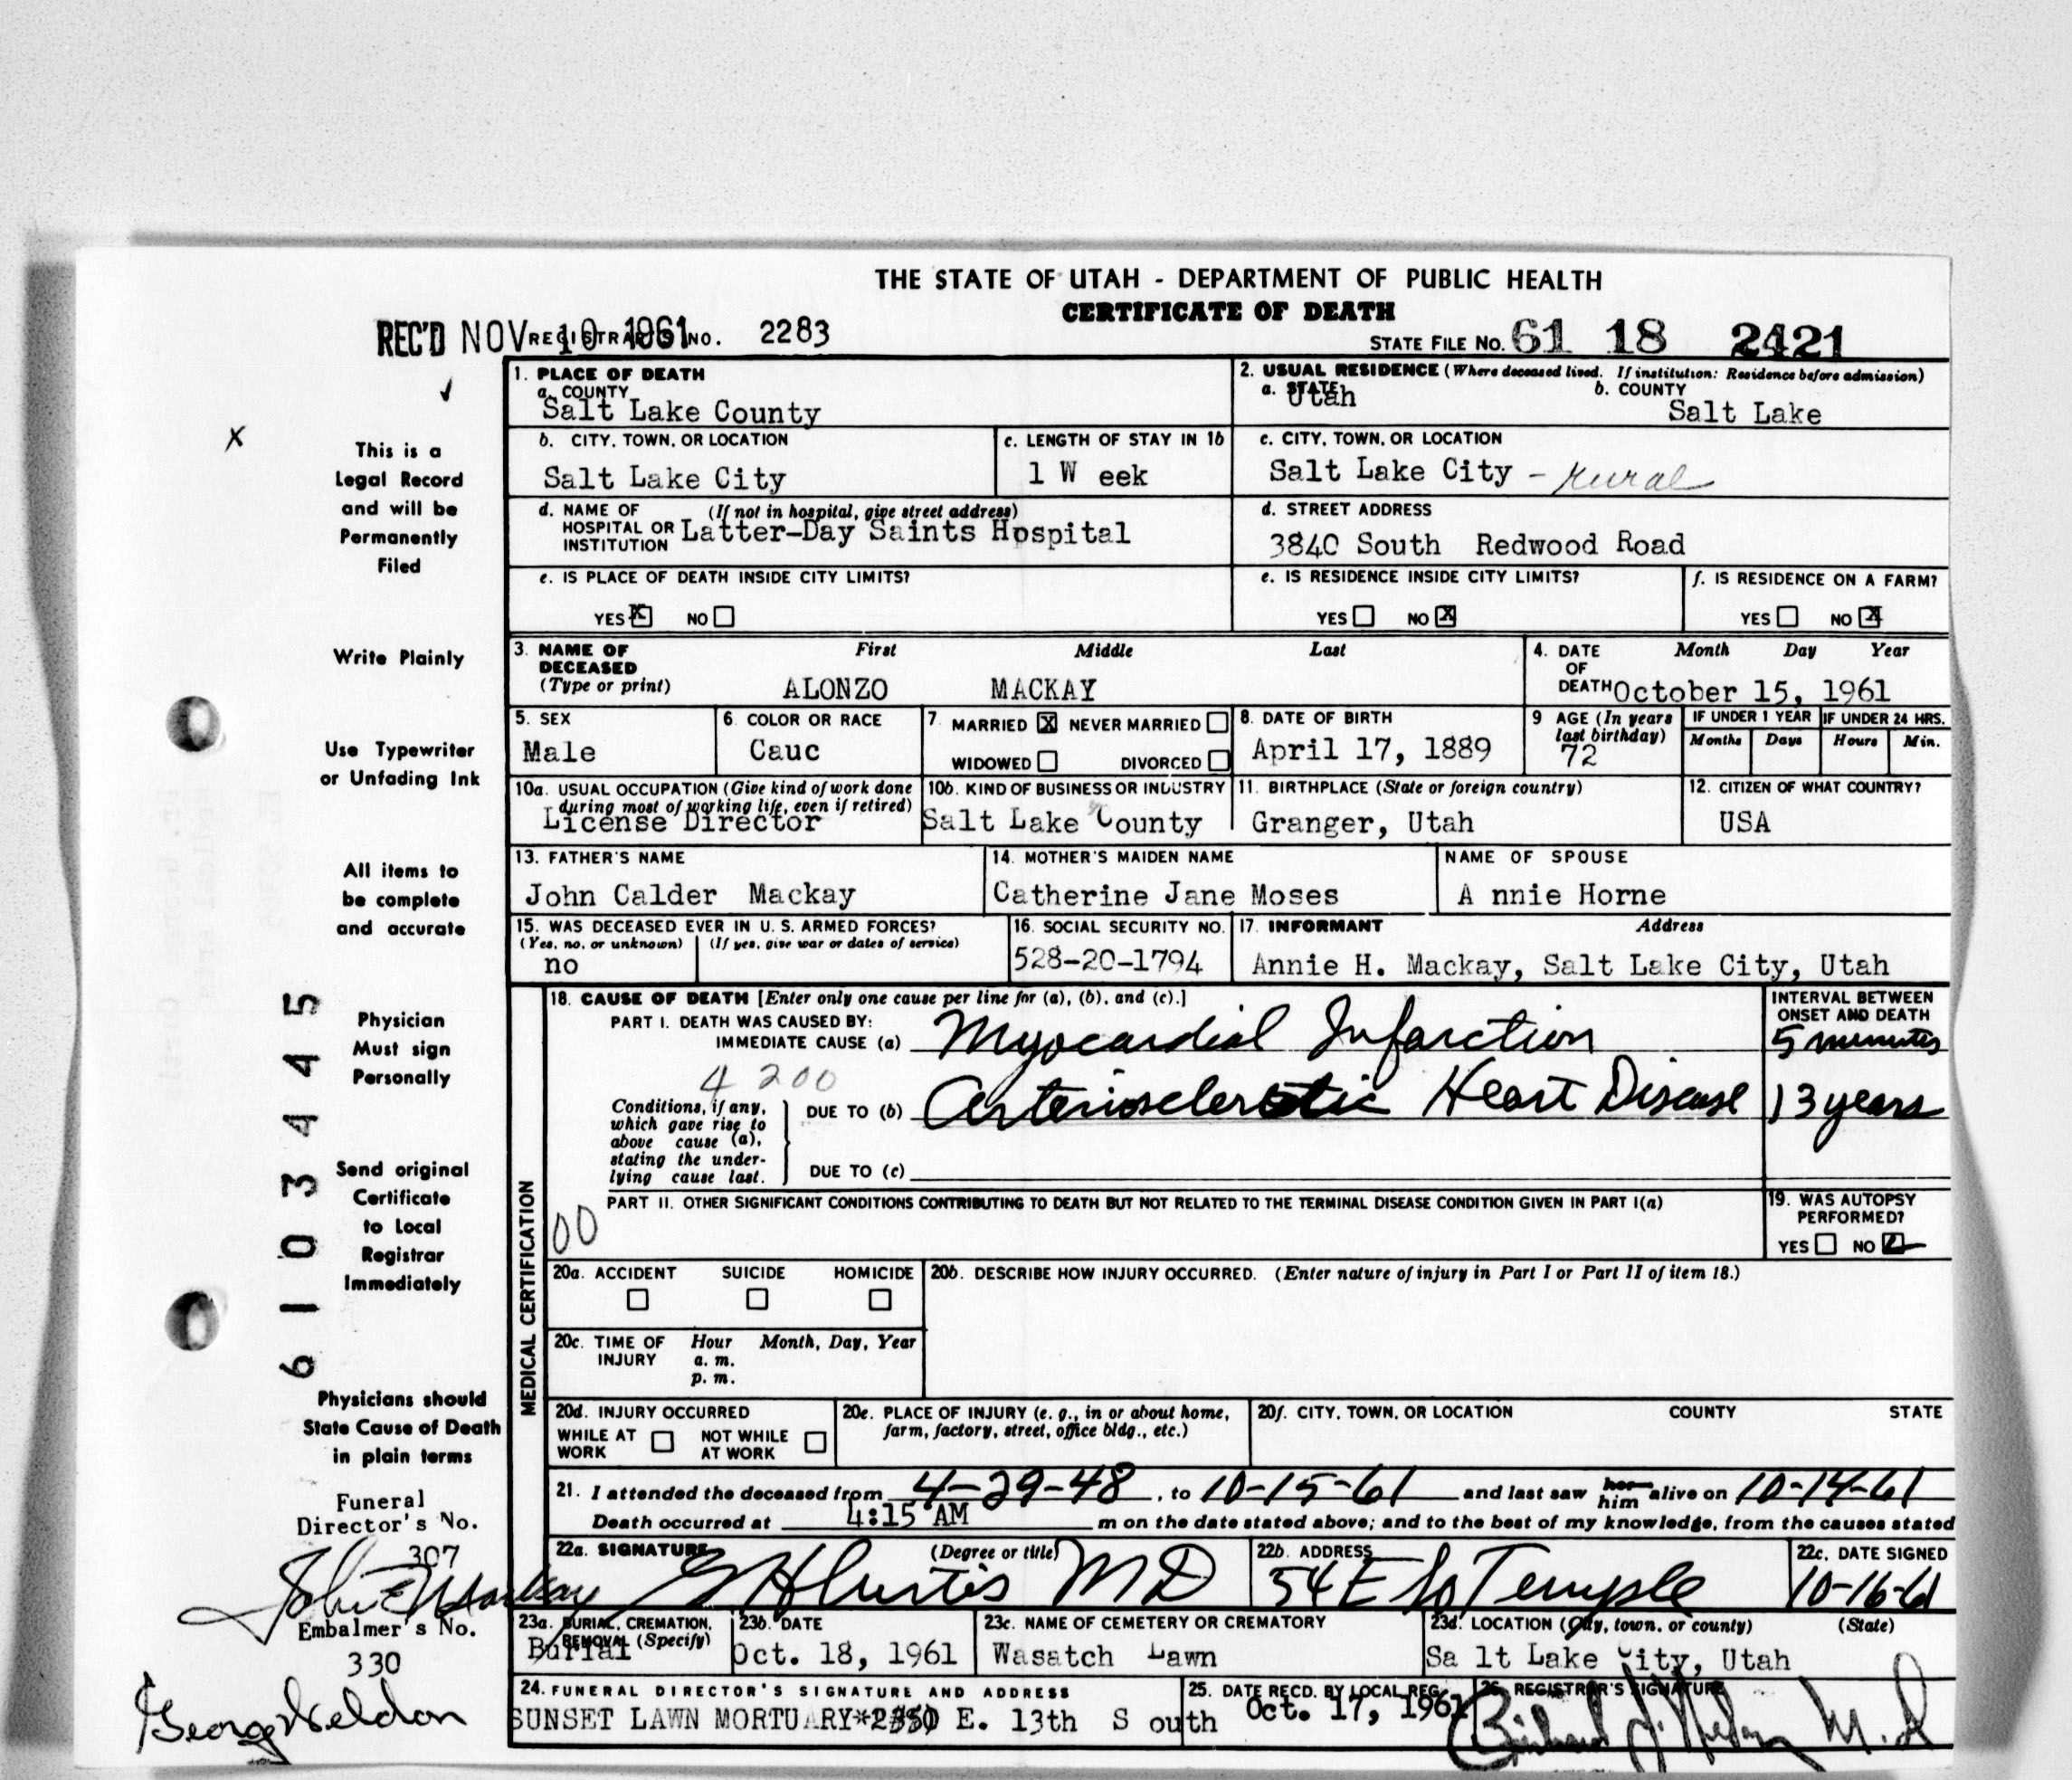 THE STATE OF UTAH - DEPARTMENT OF PUBLIC HEALTH
CERTIFICATE OF DEATH
REC'D NOV 10 1961 REGISTRAR'S NO. 2283
STATE FILE No. 61 18 2421
This is a
Legal Record
and will be
Permanently
Filed
Write Plainly
Use Typewriter
or Unfading Ink
All items to
be complete
and accurate
Physician
Must sign
Personally
Send original
Certificate
to Local
Registrar
Immediately
Physicians should
State Cause of Death
in plain terms
Funeral
Director's No.
307
Embalmer's No.
330
George Weldon
6 1 0 3 4 4 5
1. PLACE OF DEATH
a. COUNTY
Salt Lake County
2. USUAL RESIDENCE (Where deceased lived. If institution: Residence before admission)
a. STATE b. COUNTY
Utah Salt Lake
b. CITY, TOWN, OR LOCATION
Salt Lake City
c. LENGTH OF STAY IN 1b
1 W eek
c. CITY, TOWN, OR LOCATION
Salt Lake City - rural
d. NAME OF (If not in hospital, give street address)
HOSPITAL OR
INSTITUTION Latter-Day Saints Hospital
d. STREET ADDRESS
3840 South Redwood Road
e. IS PLACE OF DEATH INSIDE CITY LIMITS?
YES X NO
e. IS RESIDENCE INSIDE CITY LIMITS?
YES NO X
f. IS RESIDENCE ON A FARM?
YES NO X
3. NAME OF First Middle Last
DECEASED
(Type or print) ALONZO MACKAY
4. DATE Month Day Year
OF
DEATH October 15, 1961
5. SEX
Male
6. COLOR OR RACE
Cauc
7. MARRIED X NEVER MARRIED
WIDOWED DIVORCED
8. DATE OF BIRTH
April 17, 1889
9 AGE (In years
last birthday)
72
IF UNDER 1 YEAR IF UNDER 24 HRS.
Months Days Hours Min.
10a. USUAL OCCUPATION (Give kind of work done
during most of working life, even if retired)
License Director
10b. KIND OF BUSINESS OR INDUSTRY
Salt Lake County
11. BIRTHPLACE (State or foreign country)
Granger, Utah
12. CITIZEN OF WHAT COUNTRY?
USA
13. FATHER'S NAME
John Calder Mackay
14. MOTHER'S MAIDEN NAME
Catherine Jane Moses
NAME OF SPOUSE
A nnie Horne
15. WAS DECEASED EVER IN U. S. ARMED FORCES?
(Yes, no, or unknown) (If yes, give war or dates of service)
no
16. SOCIAL SECURITY NO.
528-20-1794
17. INFORMANT Address
Annie H. Mackay, Salt Lake City, Utah
MEDICAL CERTIFICATION
18. CAUSE OF DEATH [Enter only one cause per line for (a), (b), and (c).]
PART I. DEATH WAS CAUSED BY:
IMMEDIATE CAUSE (a) Myocardial Infarction
INTERVAL BETWEEN
ONSET AND DEATH
5 minutes
4200
Conditions, if any,
which gave rise to
above cause (a),
stating the under-
lying cause last.
DUE TO (b) Arteriosclerotic Heart Disease 13 years
DUE TO (c)
PART II. OTHER SIGNIFICANT CONDITIONS CONTRIBUTING TO DEATH BUT NOT RELATED TO THE TERMINAL DISEASE CONDITION GIVEN IN PART I(a)
00
19. WAS AUTOPSY
PERFORMED?
YES NO
20a. ACCIDENT SUICIDE HOMICIDE
20b. DESCRIBE HOW INJURY OCCURRED. (Enter nature of injury in Part I or Part II of item 18.)
20c. TIME OF Hour Month, Day, Year
INJURY a. m.
p. m.
20d. INJURY OCCURRED
WHILE AT NOT WHILE
WORK AT WORK
20e. PLACE OF INJURY (e. g., in or about home,
farm, factory, street, office bldg., etc.)
20f. CITY, TOWN, OR LOCATION COUNTY STATE
21. I attended the deceased from 4-29-48, to 10-15-61 and last saw her him alive on 10-14-61
Death occurred at 4:15 AM m on the date stated above; and to the best of my knowledge, from the causes stated
22a. SIGNATURE (Degree or title)
MD
22b. ADDRESS
54 E So Temple
22c. DATE SIGNED
10-16-61
23a. BURIAL, CREMATION,
REMOVAL (Specify)
Burial
23b. DATE
Oct. 18, 1961
23c. NAME OF CEMETERY OR CREMATORY
Wasatch Lawn
23d. LOCATION (City, town, or county) (State)
Sa lt Lake City, Utah
24. FUNERAL DIRECTOR'S SIGNATURE AND ADDRESS
SUNSET LAWN MORTUARY E. 13th S outh
25. DATE RECD. BY LOCAL REG.
Oct. 17, 1961
26. REGISTRAR'S SIGNATURE
M.D